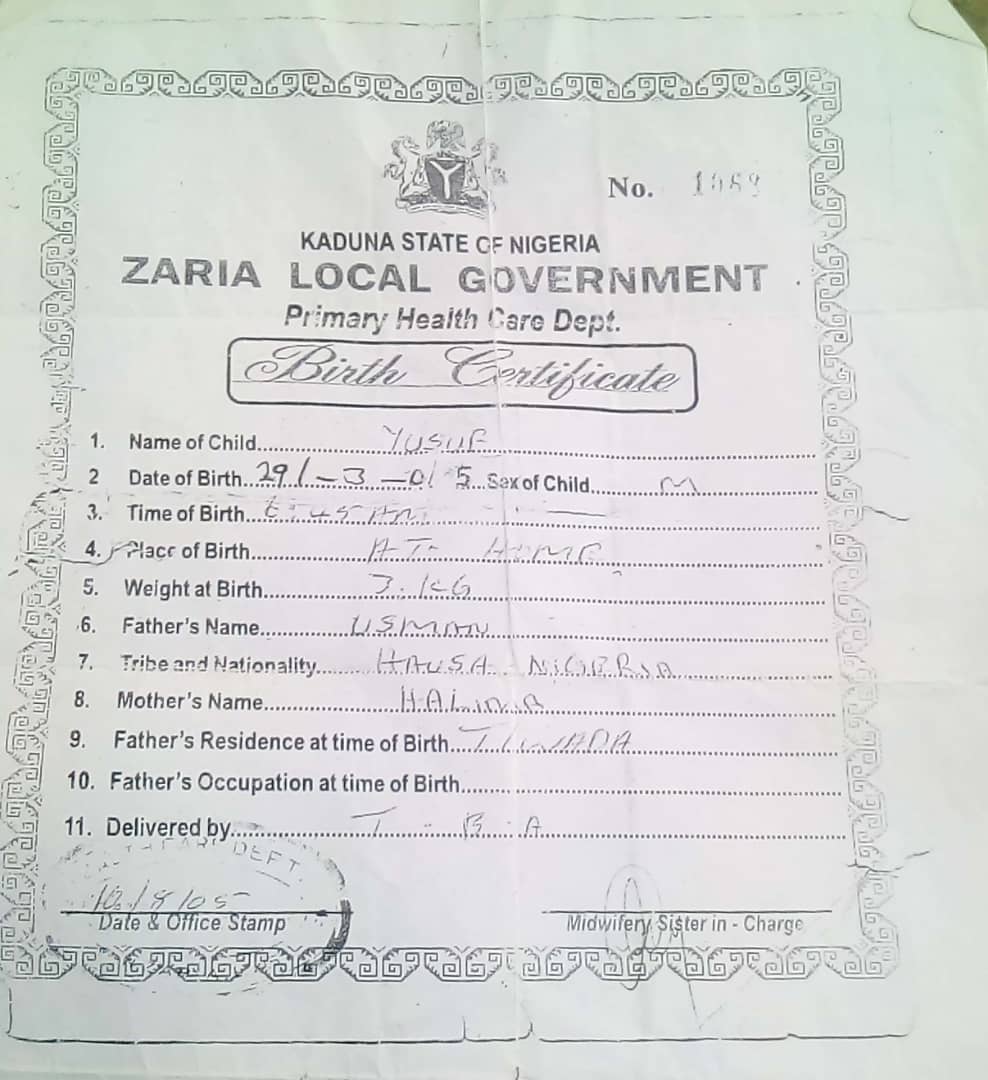 No. 1089
KADUNA STATE OF NIGERIA
ZARIA LOCAL GOVERNMENT
Primary Health Care Dept.
Birth Certificate
1. Name of Child YUSUF
2 Date of Birth 29/-3-0/5 Sex of Child M
3. Time of Birth AM
4. Place of Birth AT HOME
5. Weight at Birth 3.KG
6. Father's Name USMAN
7. Tribe and Nationality HAUSA NIGERIA
8. Mother's Name
9. Father's Residence at time of Birth
10. Father's Occupation at time of Birth
11. Delivered by T.B.A
DEPT.
10/8/05
Date & Office Stamp
Midwifery Sister in - Charge